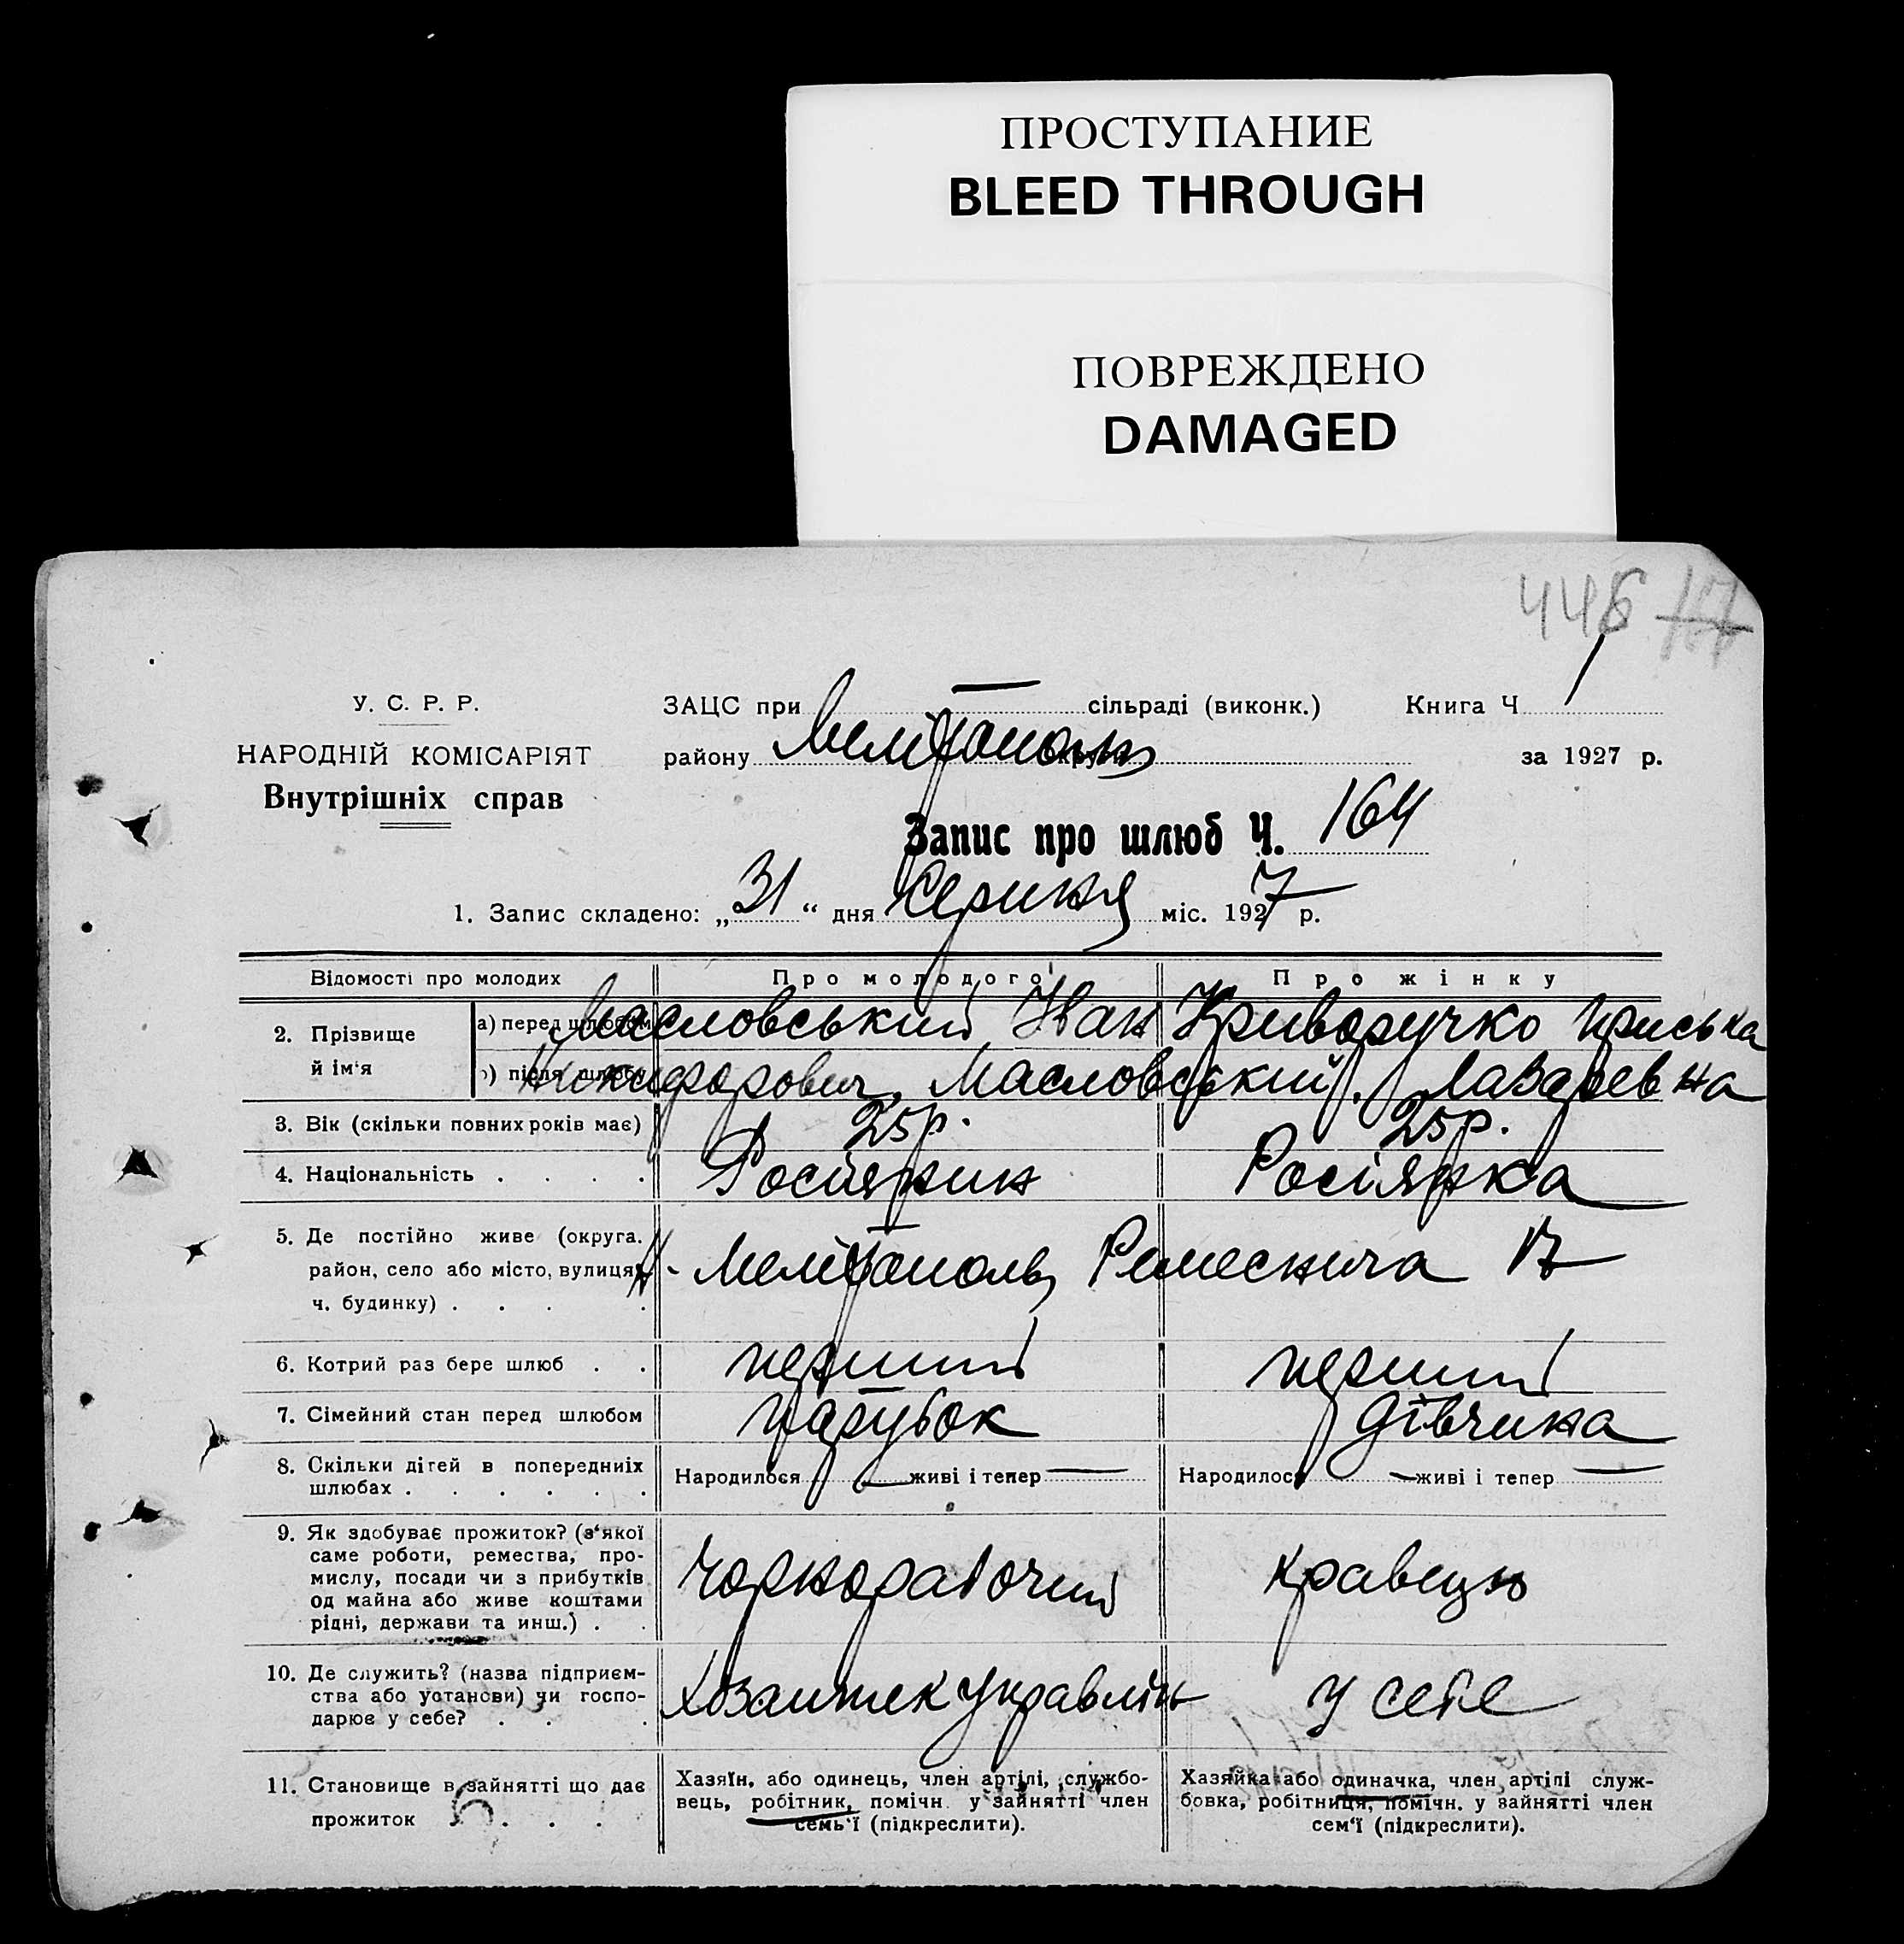 ПРОСТУПАНИЕ
BLEED THROUGH
ПОВРЕЖДЕНО
DAMAGED
446
У. С. Р. Р.
НАРОДНІЙ КОМІСАРІЯТ
Внутрішніх справ
ЗАЦС при — сільраді (виконк.) Книга Ч 1
району Мелітополь за 1927 р.
Запис про шлюб Ч. 164
1. Запис складено: „31“ дня Серпня міс. 1927 р.
Відомості про молодих Про молодого Про жінку
2. Прізвище й ім‘я а) перед шлюбом Масловський Іван Криворучко Приська
після шлюбу Никифорович, Масловський. Лазаревна
3. Вік (скільки повних років має) 25р. 25р.
4. Національність . . . . Росіянин Росіянка
5. Де постійно живе (округа.
район, село або місто, вулиця, М. Мелітополь 17
ч. будинку) . . . .
6. Котрий раз бере шлюб . . перший перший
7. Сімейний стан перед шлюбом парубок дівчина
8. Скільки дітей в попередніїх Народилося — живі і тепер — Народилося — живі і тепер —
шлюбах . . . . . .
9. Як здобуває прожиток? (з‘якої
саме роботи, ремества, про-
мислу, посади чи з прибутків чорнорабочий кравецью
од майна або живе коштами
рідні, держави та инш.) . .
10. Де служить? (назва підприєм-
ства або установи) чи госпо- управлін у себе
дарює у себе? . . .
11. Становище в зайнятті що дає
прожиток . . . .
Хазяїн, або одинець, член артілі, службо-
вець, робітник, помічн. у зайнятті член
семь‘ї (підкреслити).
Хазяйка або одиначка, член артілі служ-
бовка, робітниця, помічн. у зайнятті член
сем‘ї (підкреслити).